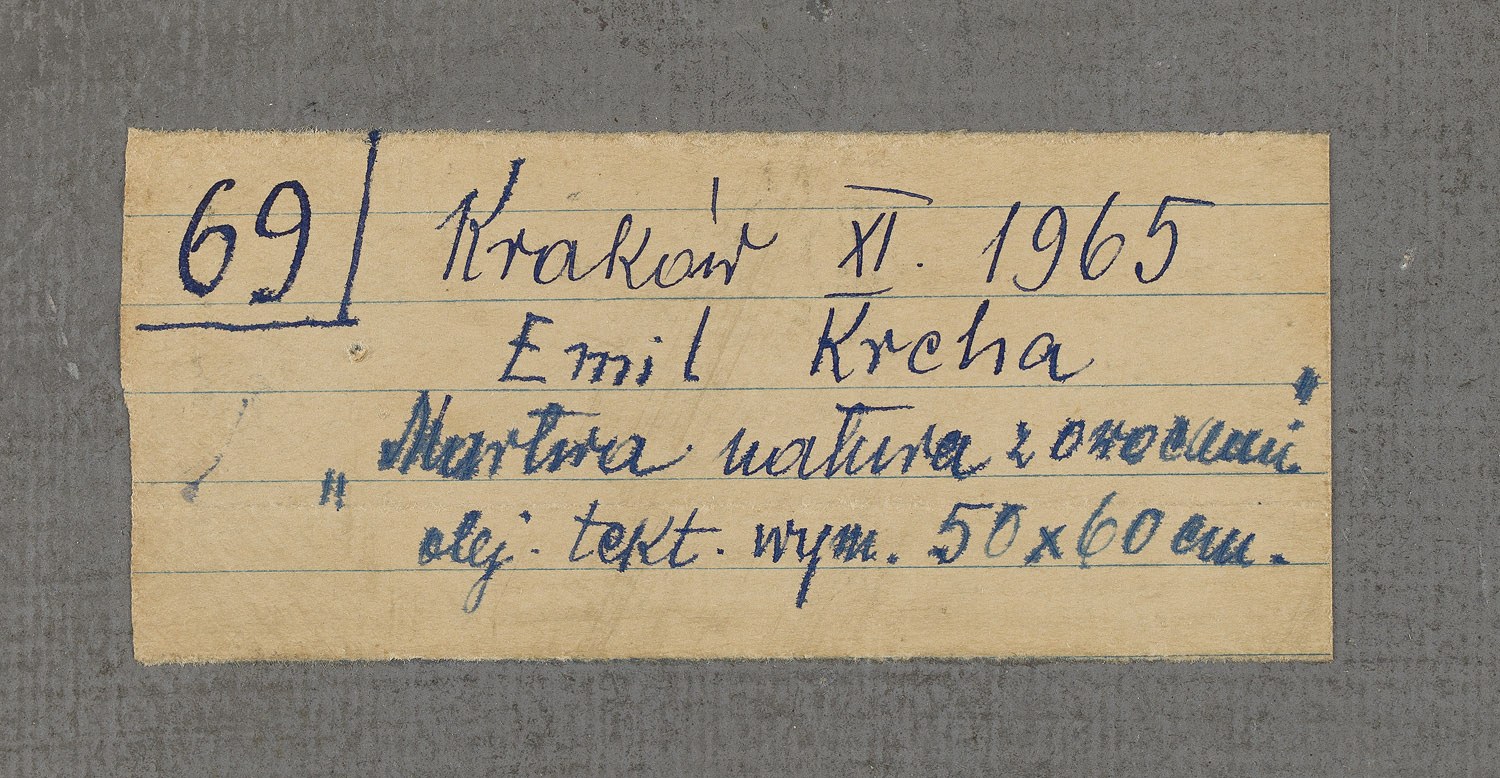 69
Kraków XI. 1965
Emil Krcha
„Martwa natura z owocami"
olej. tekt. wym. 50x60 cm.